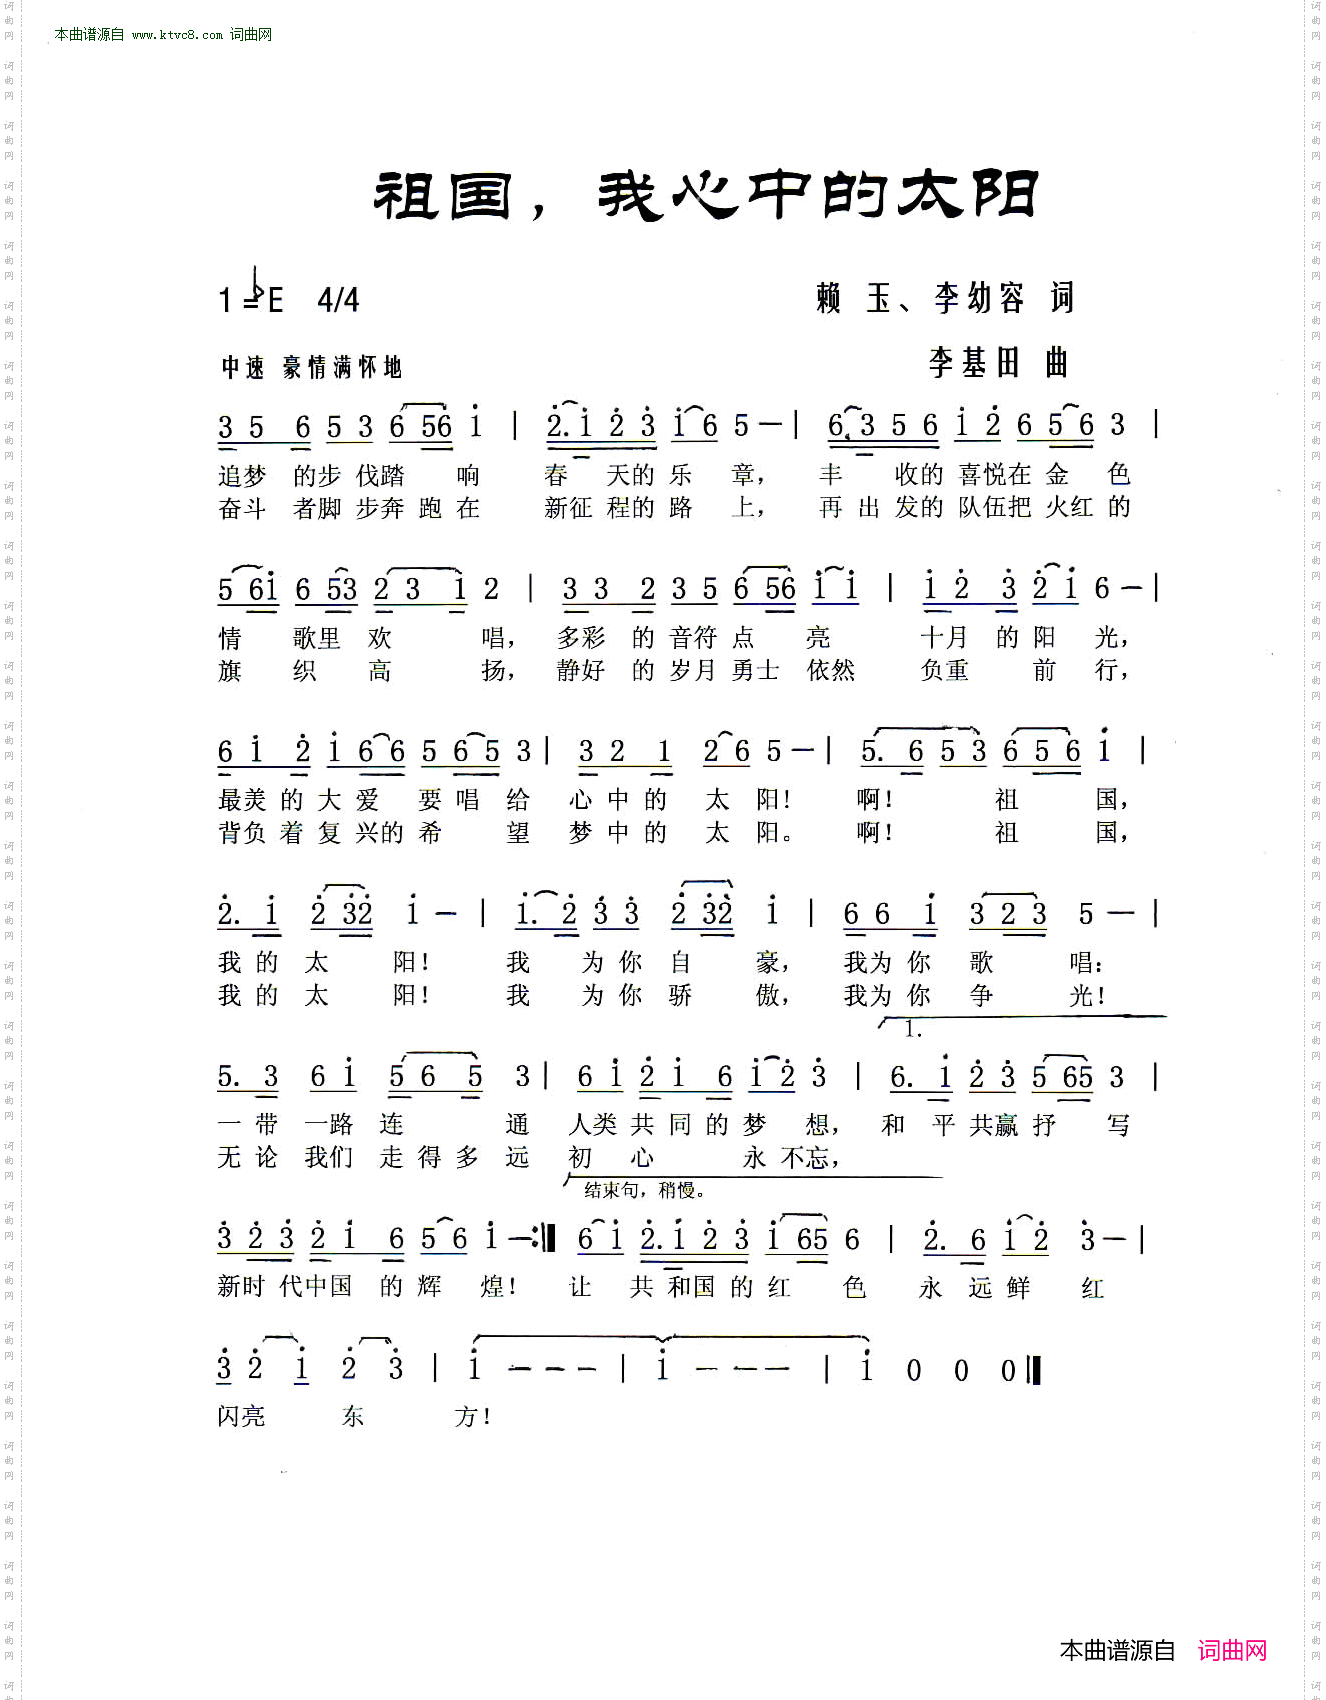 本曲谱源自 www.ktvc8.com 词曲网
祖国，我心中的太阳
1=♭E 4/4 赖 玉、李幼容 词
中速 豪情满怀地 李基田 曲
3 5 6 5 3 6 56 i | 2. i 2 3 i 6 5 — | 6. 3 5 6 i 2 6 5 6 3 |
追梦 的步 伐踏 响 春 天的 乐 章， 丰 收的 喜悦在 金 色
奋斗 者脚 步奔 跑 在 新征 程的 路 上， 再 出 发的 队伍把 火红 的
5 6i 6 53 2 3 1 2 | 3 3 2 3 5 6 56 i i | i 2 3 2 i 6 — |
情 歌里 欢 唱， 多彩 的 音符 点 亮 十月 的 阳 光，
旗 织 高 扬， 静好 的 岁月 勇士 依然 负重 前 行，
6 i 2 i 6 6 5 6 5 3 | 3 2 1 2 6 5 — | 5. 6 5 3 6 5 6 i |
最美 的 大 爱 要 唱 给 心 中 的 太 阳！ 啊！ 祖 国，
背负 着 复 兴的 希 望 梦 中 的 太 阳。 啊！ 祖 国，
2. i 2 32 i — | i. 2 3 3 2 32 i | 6 6 i 3 2 3 5 — |
我 的 太 阳！ 我 为 你 自 豪， 我为 你 歌 唱：
我 的 太 阳！ 我 为 你 骄 傲， 我为 你 争 光！
1.
5. 3 6 i 5 6 5 3 | 6 i 2 i 6 i 2 3 | 6. i 2 3 5 65 3 |
一 带 一路 连 通 人类 共 同 的 梦 想， 和 平 共赢 抒 写
无 论 我们 走 得 多 远 初 心 永 不忘，
结束句，稍慢。
3 2 3 2 i 6 5 6 i — :‖ 6 i 2. i 2 3 i 65 6 | 2. 6 i 2 3 — |
新时 代中国 的 辉 煌！ 让 共 和国 的 红 色 永 远 鲜 红
3 2 i 2 3 | i — — — | i — — — | i 0 0 0 ‖
闪亮 东 方！
本曲谱源自 词曲网